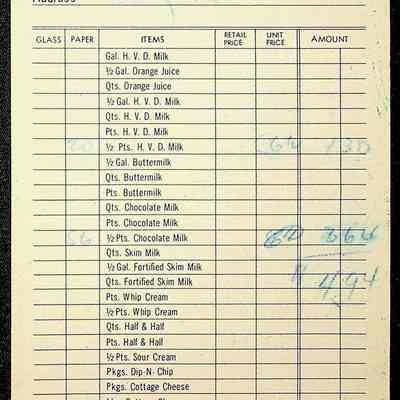 Address
GLASS PAPER ITEMS RETAIL PRICE UNIT PRICE AMOUNT
Gal. H. V. D. Milk
½ Gal. Orange Juice
Qts. Orange Juice
½ Gal. H. V. D. Milk
Qts. H. V. D. Milk
Pts. H. V. D. Milk
20 ½ Pts. H. V. D. Milk 130
½ Gal. Buttermilk
Qts. Buttermilk
Pts. Buttermilk
Qts. Chocolate Milk
Pts. Chocolate Milk
56 ½ Pts. Chocolate Milk 364
Qts. Skim Milk
½ Gal. Fortified Skim Milk 494
Qts. Fortified Skim Milk
Pts. Whip Cream
½ Pts. Whip Cream
Qts. Half & Half
Pts. Half & Half
½ Pts. Sour Cream
Pkgs. Dip-N-Chip
Pkgs. Cottage Cheese